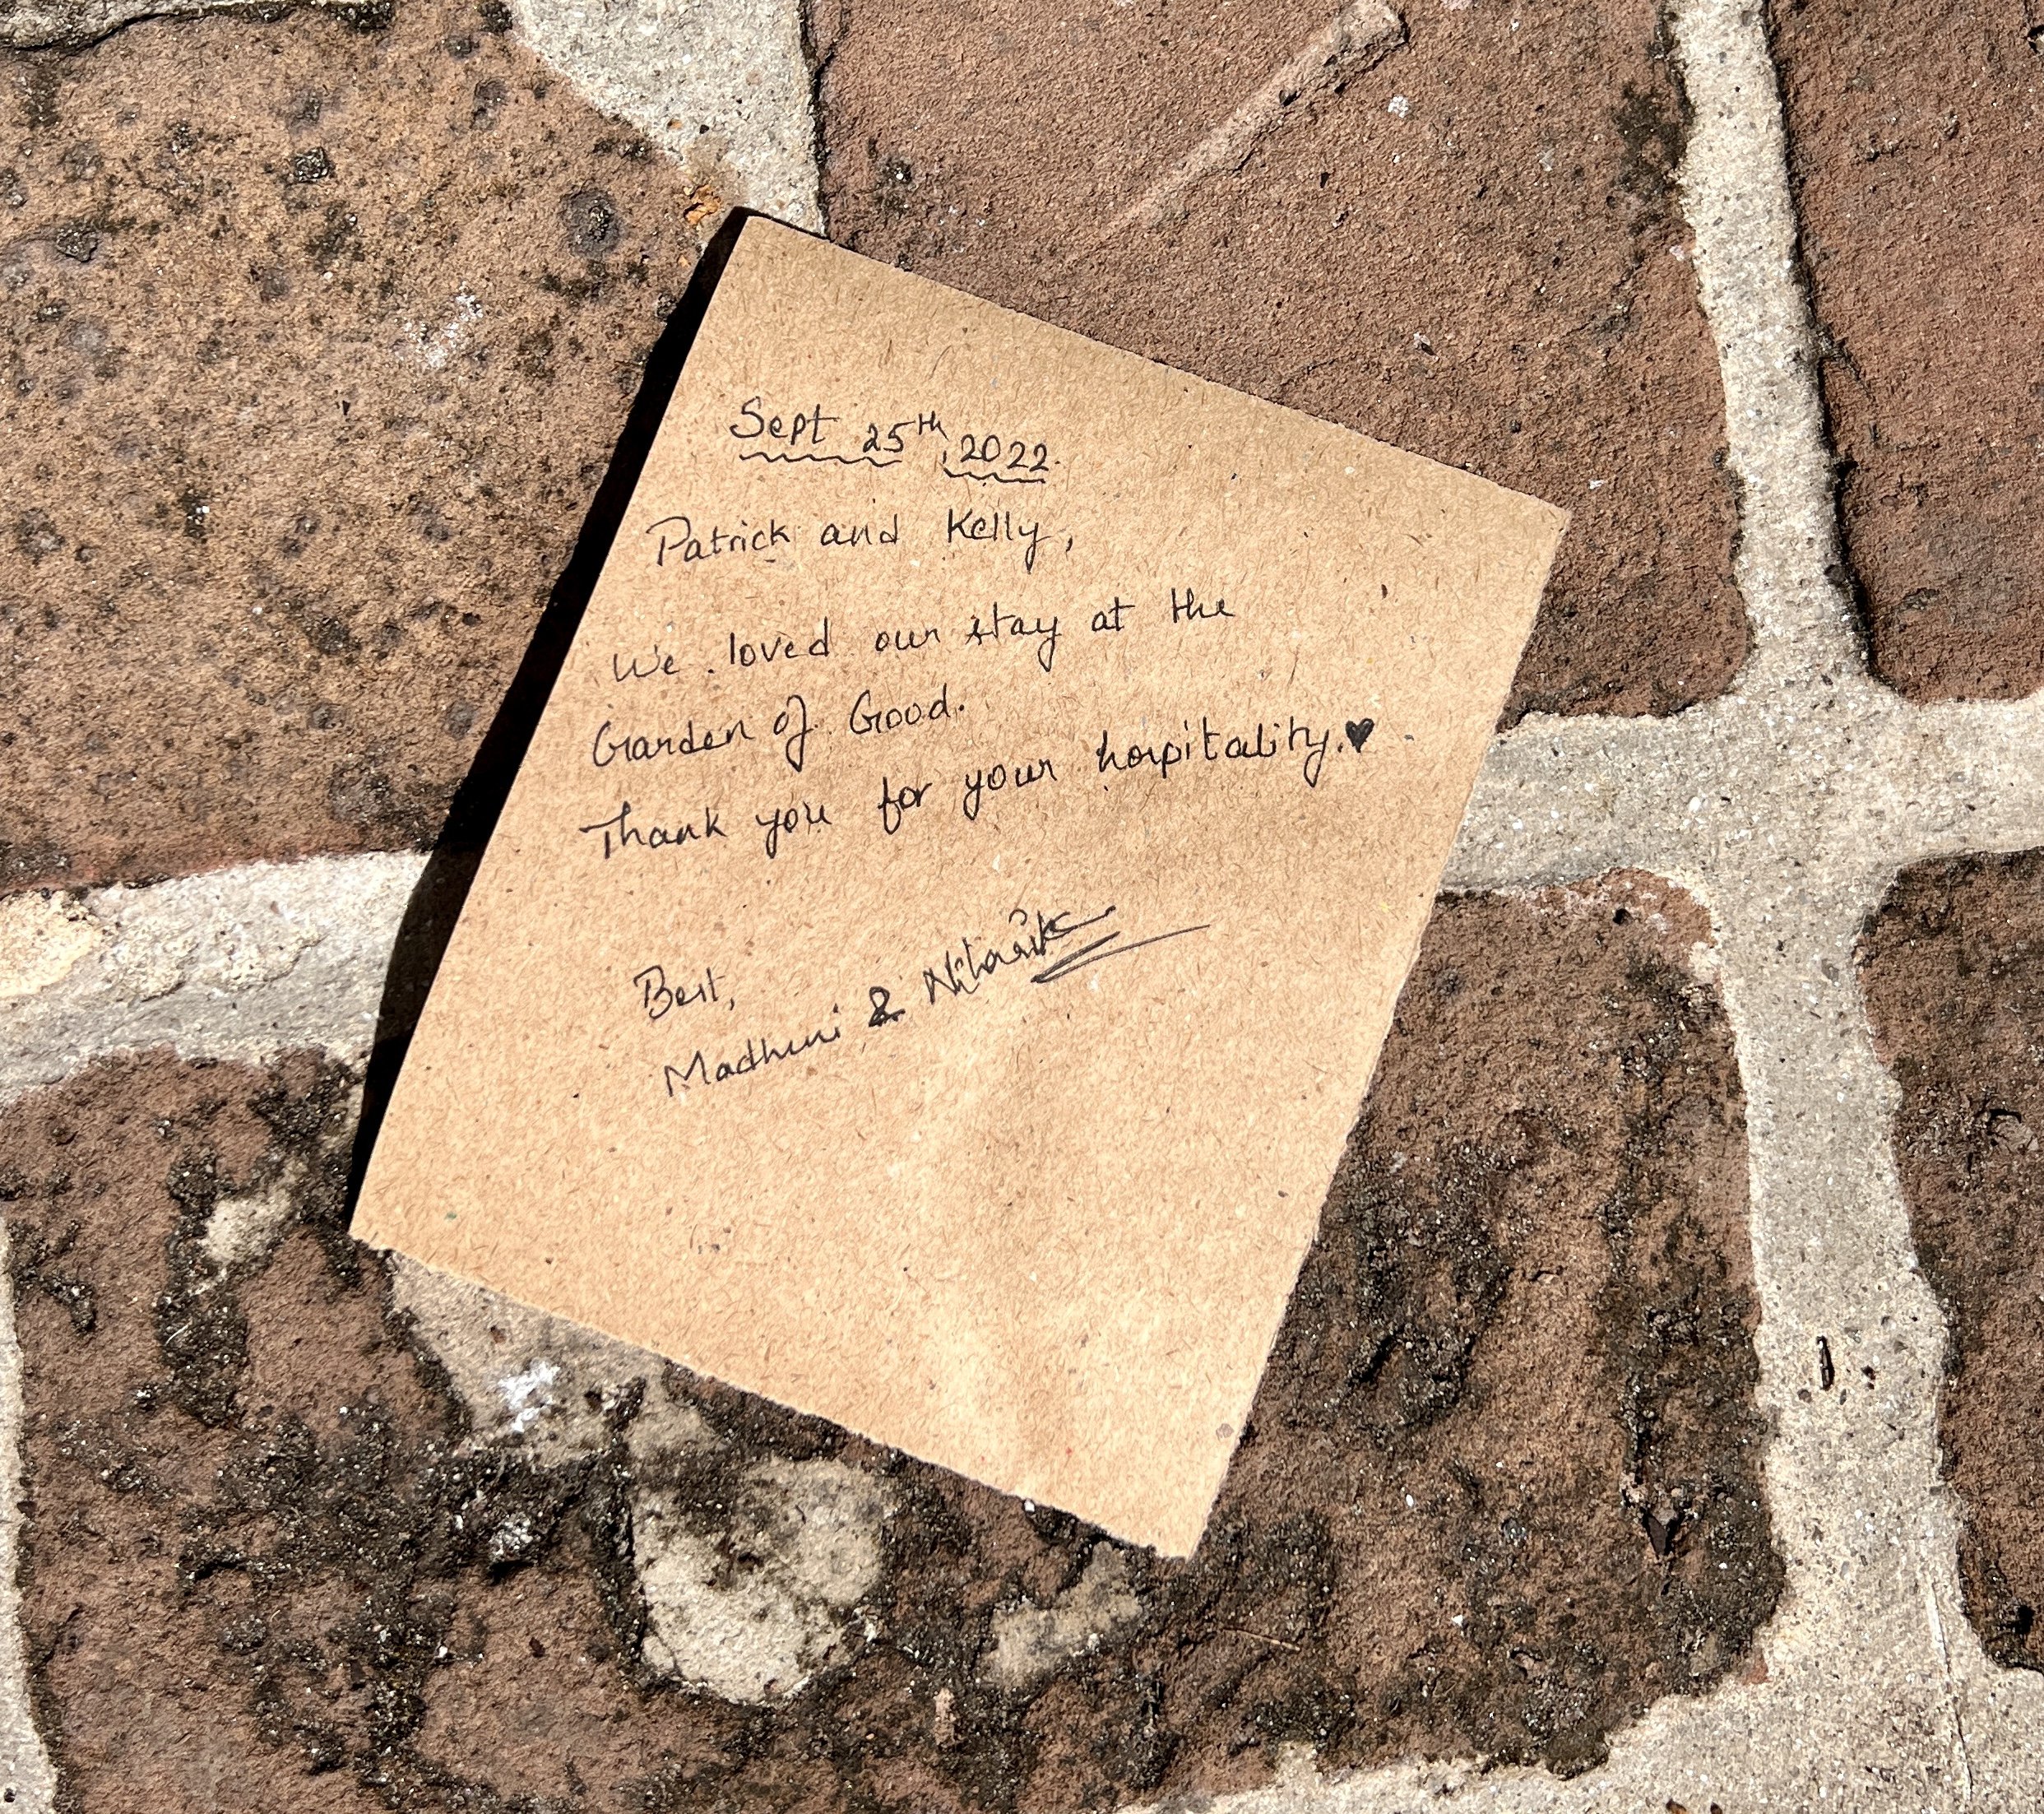 Sept 25th, 2022.
Patrick and Kelly,
We loved our stay at the
Garden of Good.
Thank you for your hospitality.♥
Best,
Madhuri &